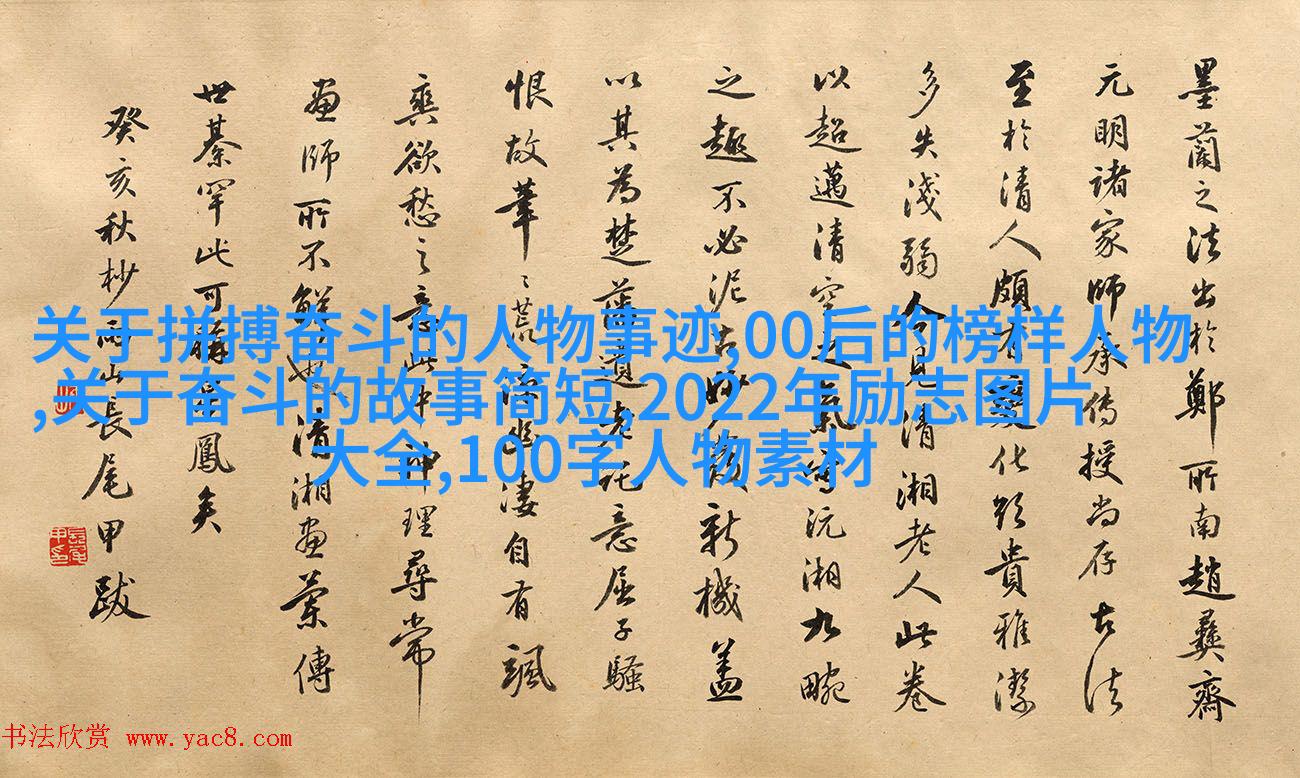 墨蘭之法出於鄭所南趙彝齋
元明諸家師承傳授尚存古法
至於清人頗有變化貴雅潔
多失淺弱今見清湘老人此卷
以超邁清空之氣寫沅湘九畹
之趣不必泥古妙新機蓋
以其為楚藩遺老託意屈子騷
恨故筆〻荒寒幽淒自有颯
爽欲愁之意此中神理尋常
畫師所不解清湘畫蘭傳
世綦罕此可稱鳳矣
癸亥秋杪雨山長尾甲跋
关于拼搏奋斗的人物事迹,00后的榜样人物
,关于奋斗的故事简短,2022年励志图片
大全,100字人物素材
书法欣赏 www.yac8.com